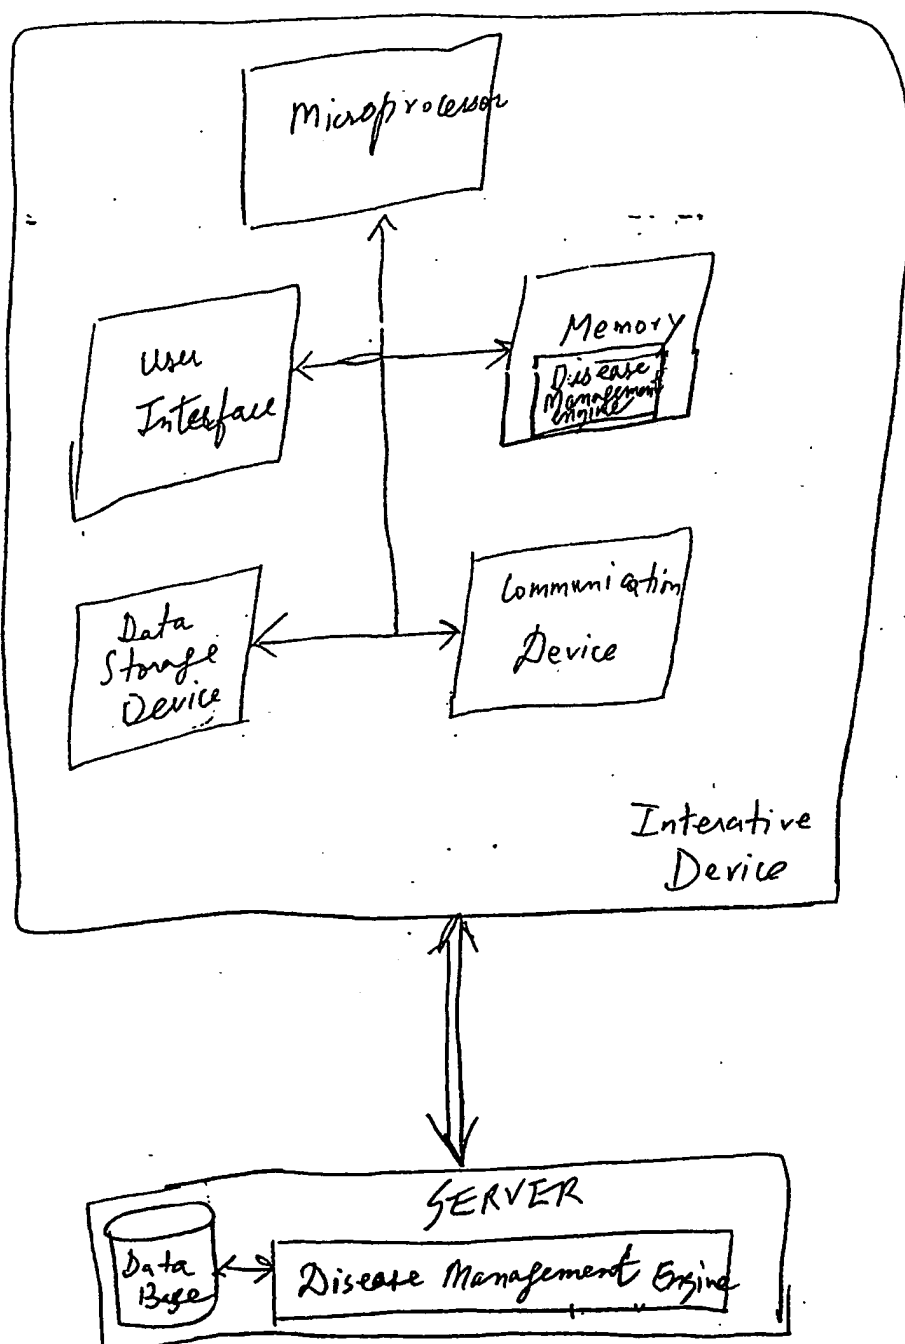 Microprocessor
User
Interface
Memory
Disease
Management
Engine
Data
Storage
Device
Communication
Device
Interative
Device
SERVER
Data
Base
Disease Management Engine